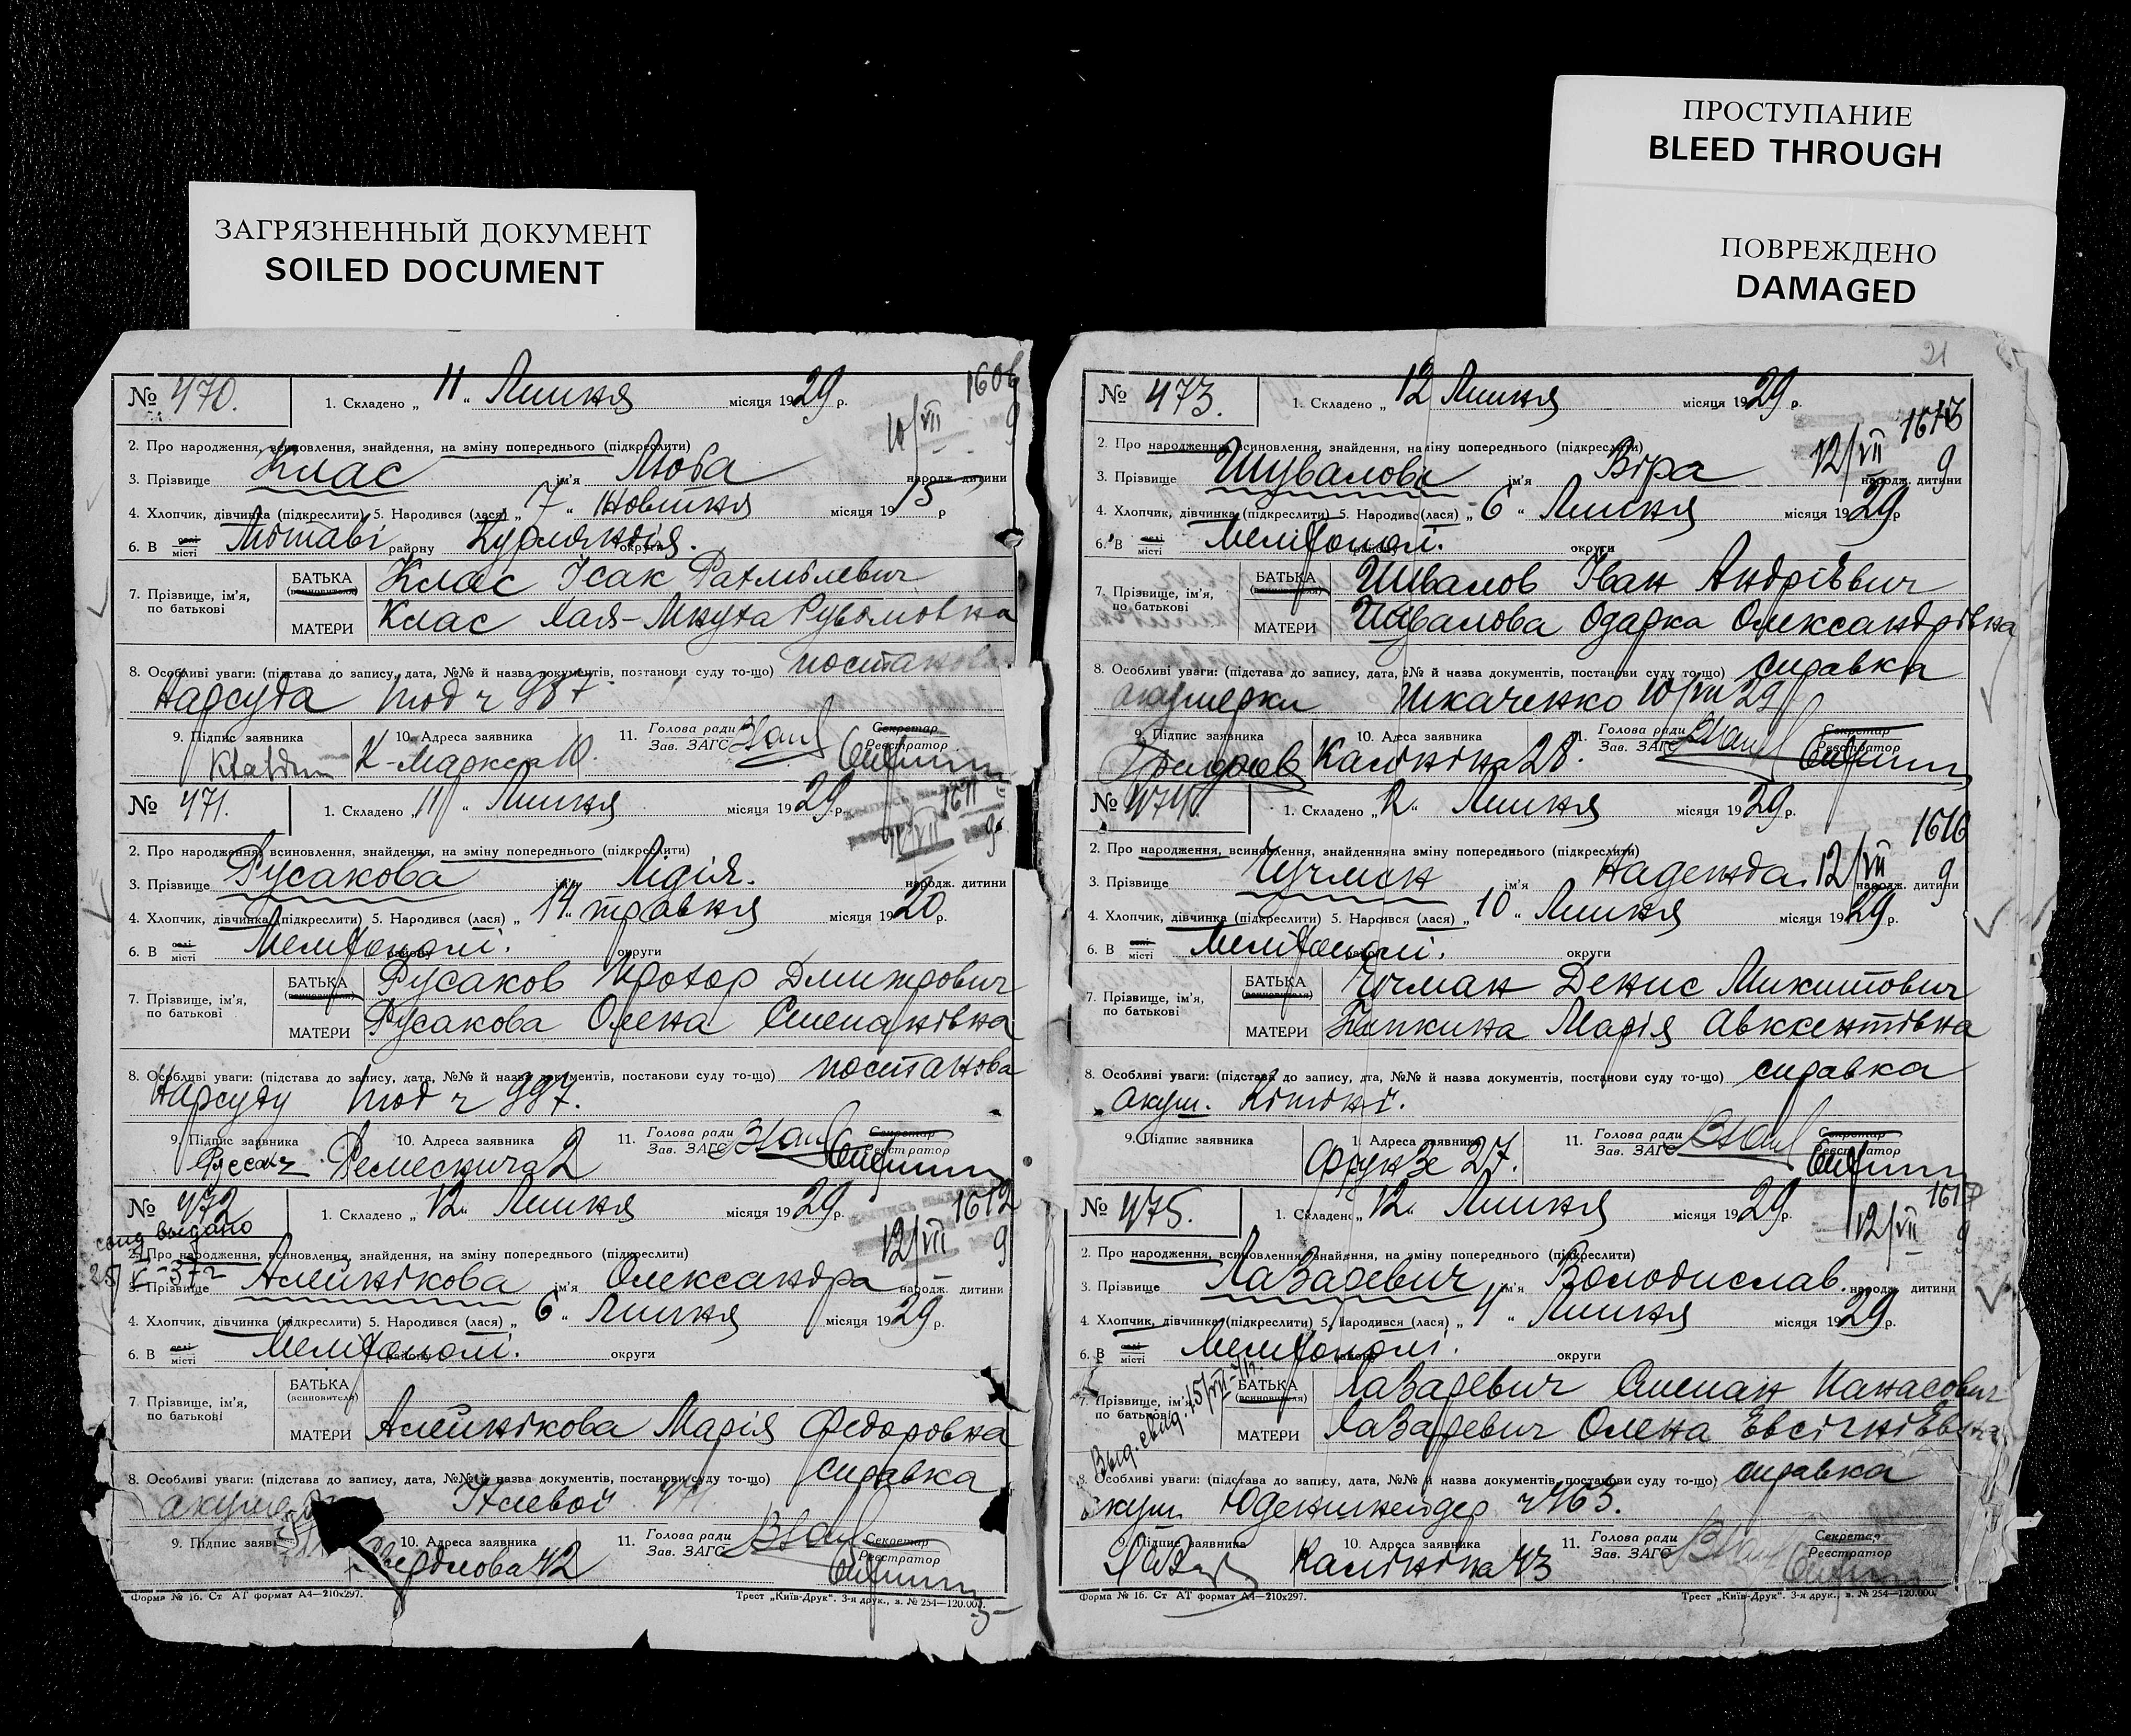 ПРОСТУПАНИЕ
BLEED THROUGH
ПОВРЕЖДЕНО
DAMAGED
ЗАГРЯЗНЕННЫЙ ДОКУМЕНТ
SOILED DOCUMENT
№ 470. 1. Складено „ 11 “ Липня місяця 1929 р.
10/VII 9
2. Про народження, всиновлення, знайдення, на зміну попереднього (підкреслити)
3. Прізвище Клас ім'я Люба народж. дитини
4. Хлопчик, дівчинка (підкреслити) 5. Народився (лася) „ 7 “ місяця 1915 р
6. В селі місті Мітаві району округи
7. Прізвище, ім'я, по батькові
БАТЬКА (всиновителя) Клас Ісак
МАТЕРИ Клас Хая-
8. Особливі уваги: (підстава до запису, дата, №№ й назва документів, постанови суду то-що) постанова
Нарсуда под ч 987
9. Підпис заявника 10. Адреса заявника К-Маркса 10. 11. Голова ради Зав. ЗАГС Секретар Реєстратор
№ 471. 1. Складено „ 11 “ Липня місяця 1929 р.
1611
11/VII 9
2. Про народження, всиновлення, знайдення, на зміну попереднього (підкреслити)
3. Прізвище Русакова ім'я Лідія. народж. дитини
4. Хлопчик, дівчинка (підкреслити) 5. Народився (лася) „ 14 “ травня місяця 1920 р.
6. В селі місті Мелітополі. району округи
7. Прізвище, ім'я, по батькові
БАТЬКА (всиновителя) Русаков Прохор Дмитрович
МАТЕРИ Русакова Олена Степанівна
8. Особливі уваги: (підстава до запису, дата, №№ й назва документів, постанови суду то-що) постанова
Нарсуду под ч 997.
9. Підпис заявника 10. Адреса заявника 2 11. Голова ради Зав. ЗАГС Секретар Реєстратор
№ 472 1. Складено „ 12 “ Липня місяця 1929 р.
1612
12/VII 9
выдано
2. Про народження, всиновлення, знайдення, на зміну попереднього (підкреслити)
3. Прізвище Алейнікова ім'я Олександра народж. дитини
4. Хлопчик, дівчинка (підкреслити) 5. Народився (лася) „ 6 “ Липня місяця 1929 р.
6. В селі місті Мелітополі. району округи
7. Прізвище, ім'я, по батькові
БАТЬКА (всиновителя)
МАТЕРИ Алейнікова Марія Федоровна
8. Особливі уваги: (підстава до запису, дата, №№ й назва документів, постанови суду то-що) справка
9. Підпис заяв 10. Адреса заявника Свердлова 42 11. Голова ради Зав. ЗАГС Секретар Реєстратор
Форма № 16. Ст АТ формат А4—210х297. Трест „Київ-Друк“. 3-я друк., з. № 254—120.000.
21
№ 473. 1. Складено „ 12 Липня місяця 1929 р.
1613
12/VII 9
2. Про народження, всиновлення, знайдення, на зміну попереднього (підкреслити)
3. Прізвище Шувалова ім'я Віра народж. дитини
4. Хлопчик, дівчинка (підкреслити) 5. Народився (лася) „ 6 “ Липня місяця 1929 р
6. В селі місті Мелітополі. району округи
7. Прізвище, ім'я, по батькові
БАТЬКА (всиновителя) Шувалов Іван Андрієвич
МАТЕРИ Шувалова Одарка Олександрівна
8. Особливі уваги: (підстава до запису, дата, №№ й назва документів, постанови суду то-що) справка
акушерки Ткаченко 10/VII 29
9. Підпис заявника 10. Адреса заявника Калініна 28. 11. Голова ради Зав. ЗАГС Секретар Реєстратор
№ 474. 1. Складено „ 12 “ Липня місяця 1929 р.
1616
12/VII 9
2. Про народження, всиновлення, знайдення на зміну попереднього (підкреслити)
3. Прізвище Чучман ім'я Надежда. народж. дитини
4. Хлопчик, дівчинка (підкреслити) 5. Народився (лася) „ 10 “ Липня місяця 1929 р.
6. В селі місті Мелітополі. району округи
7. Прізвище, ім'я, по батькові
БАТЬКА (всиновителя) Чучман Денис Микитович
МАТЕРИ Марія Авксентівна
8. Особливі уваги: (підстава до запису, дата, №№ й назва документів, постанови суду то-що) справка
акуш.
9. Підпис заявника 10. Адреса заявника Фрунзе 27. 11. Голова ради Зав. ЗАГС Секретар Реєстратор
№ 475. 1. Складено „ 12 “ Липня місяця 1929 р.
1617
12/VII 9
2. Про народження, всиновлення, знайдення, на зміну попереднього (підкреслити)
3. Прізвище Лазаревич ім'я Володислав. народж. дитини
4. Хлопчик, дівчинка (підкреслити) 5. Народився (лася) „ 4 “ Липня місяця 1929 р.
6. В селі місті Мелітополі. району округи
7. Прізвище, ім'я, по батькові
БАТЬКА (всиновителя) Лазаревич Степан Панасович
МАТЕРИ Лазаревич Олена Евсігніевна
Выд. свид.
8. Особливі уваги: (підстава до запису, дата, №№ й назва документів, постанови суду то-що) справка
акуш ч 463.
9. Підпис заявника 10. Адреса заявника Калініна 43 11. Голова ради Зав. ЗАГС Секретар Реєстратор
Форма № 16. Ст АТ формат А4—210х297. Трест „Київ-Друк“. 3-я друк., з. № 254—120.000.